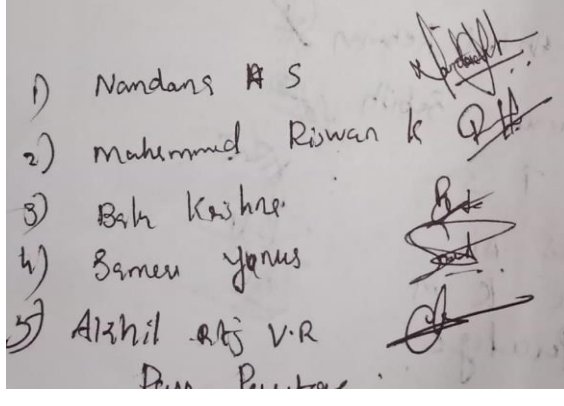 1) Nandana S
2) Muhammed Riswan K
3) Bala Krishna.
4) Sameer Yanus
5) Akhil Raj V.R